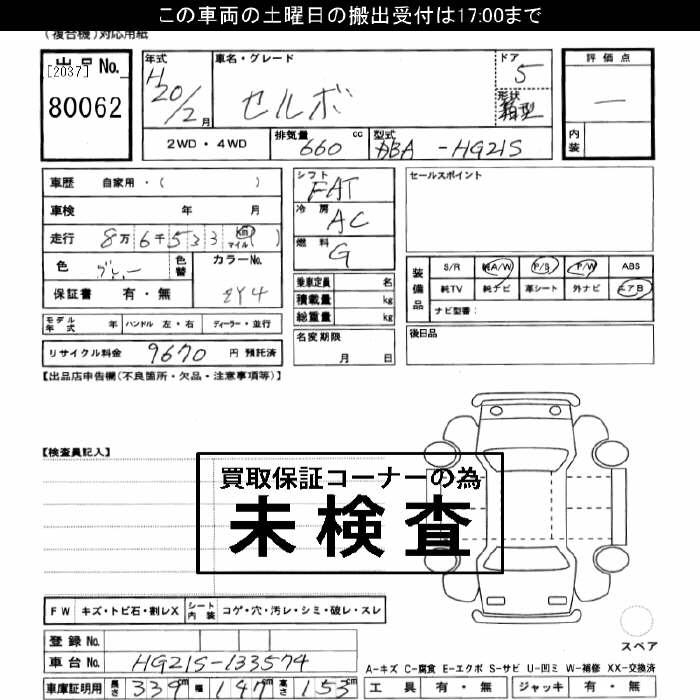 この車両の土曜日の搬出受付は17:00まで
(複合機)対応用紙
出品No.
[2037]
80062
年式 H20/2月
車名・グレード セルボ
ドア 5
形状 箱型
2WD・4WD
排気量 660 cc
型式 DBA-HG21S
評価点
—
内装
車歴 自家用・( )
車検 年 月
走行 8万6千533 km マイル ( )
色 グレー 色替
カラーNo. ZY4
保証書 有・無
モデル年式 年 ハンドル 左・右 ディーラー・並行
リサイクル料金 9670 円 預託済
シフト FAT
冷房 AC
燃料 G
乗車定員 名
積載量 kg
総重量 kg
名変期限
月 日
セールスポイント
装備品
S/R 純A/W P/S P/W ABS
純TV 純ナビ 革シート 外ナビ エアB
ナビ型番:
後日品
【出品店申告欄(不良箇所・欠品・注意事項等)】
【検査員記入】
買取保証コーナーの為
未検査
FW キズ・トビ石・割レX シート内装 コゲ・穴・汚レ・シミ・破レ・スレ
登録No.
車台No. HG21S-133574
車庫証明用 長さ 339cm 幅 147cm 高さ 153cm
スペア
A-キズ C-腐食 E-エクボ S-サビ U-凹ミ W-補修 XX-交換済
工具 有・無 ジャッキ 有・無